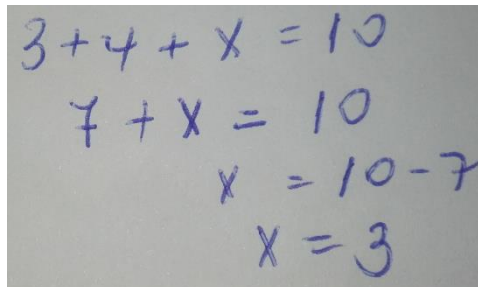 3 + 4 + x = 10
7 + x = 10
x = 10 - 7
x = 3